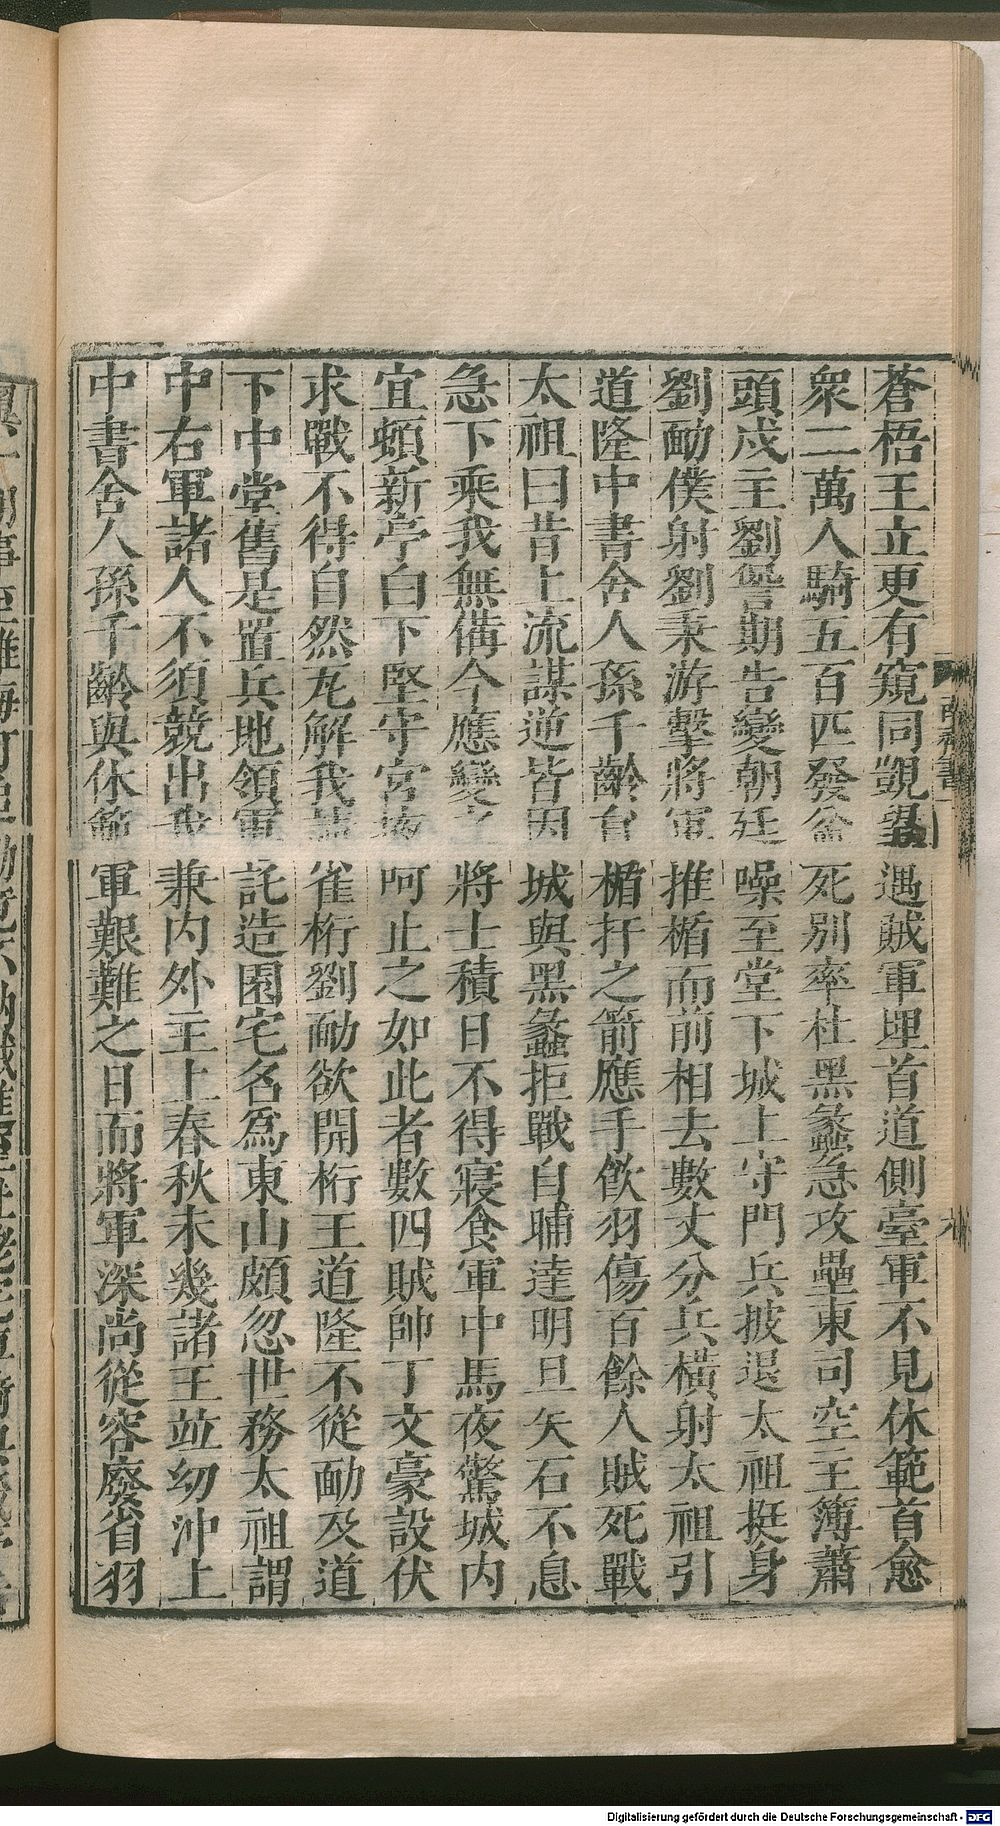 蒼梧王立更有窺同覬望遇賊軍埋首道側臺軍不見休範首愈
衆二萬人騎五百匹發盆死別率杜黑蠡急攻壘東司空主簿蕭
頭戍主劉詧期告變朝廷噪至堂下城上守門兵披退太祖挺身
劉勔僕射劉秉游擊將軍推楯而前相去數丈分兵橫射太祖引
道隆中書舍人孫千齡台楯扞之箭應手飲羽傷百餘人賊死戰
太祖曰昔上流謀逆皆因城與黑蠡拒戰自晡達明旦矢石不息
急下乘我無備今應變之將士積日不得寢食軍中馬夜驚城內
宜頓新亭白下堅守宮掖呵止之如此者數四賊帥丁文豪設伏
求戰不得自然瓦解我請雀桁劉勔欲開桁王道隆不從勔及道
下中堂舊是置兵地領軍託造園宅名爲東山頗忽世務太祖謂
中右軍諸人不須競出我兼內外主上春秋未幾諸王並幼沖上
中書舍人孫千齡與休範軍艱難之日而將軍深尚從容廢省羽
Digitalisierung gefördert durch die Deutsche Forschungsgemeinschaft - DFG